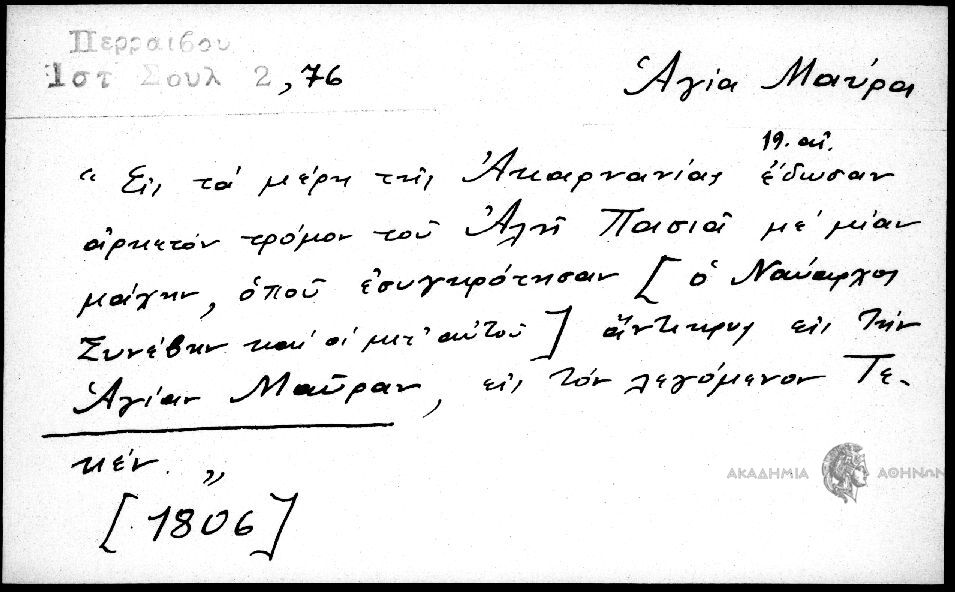 Περραιβου
Ιστ Σουλ 2,76
Ἁγία Μαύρα
19. αἰ.
"Εἰς τά μέρη τῆς Ἀκαρνανίας ἔδωσαν
ἀρκετόν τρόμον τοῦ Ἀλῆ Πασιᾶ μέ μίαν
μάχην, ὁποῦ ἐσυγκρότησαν [ὁ Ναύαρχος
Συνέβην καί οἱ μετ' αὐτοῦ] ἄντικρυς εἰς τήν
Ἁγίαν Μαῦραν, εἰς τόν λεγόμενον Τε-
κέν."
[1806]
ΑΚΑΔΗΜΙΑ ΑΘΗΝΩΝ